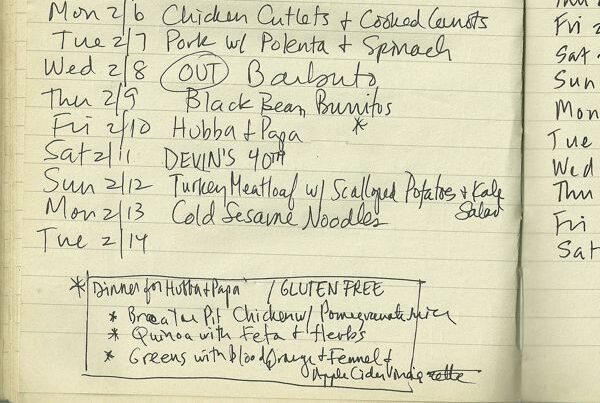 Mon 2/6 Chicken Cutlets + Cooked Carrots
Tue 2/7 Pork w/ Polenta + Spinach
Wed 2/8 OUT Barbuto
Thu 2/9 Black Bean Burritos
Fri 2/10 Hubba + Papa *
Sat 2/11 DEVIN'S 40TH
Sun 2/12 Turkey Meatloaf w/ Scalloped Potatoes + Kale
Salad
Mon 2/13 Cold Sesame Noodles
Tue 2/14
* Dinner for Hubba + Papa / GLUTEN FREE
* Chicken w/ Pomegranate
* Quinoa with Feta + Herbs
* Greens with Blood Orange + Fennel +
Apple Cider
Thu
Fri 2
Sat
Sun
Mon
Tue
Wed
Thu
Fri
Sat